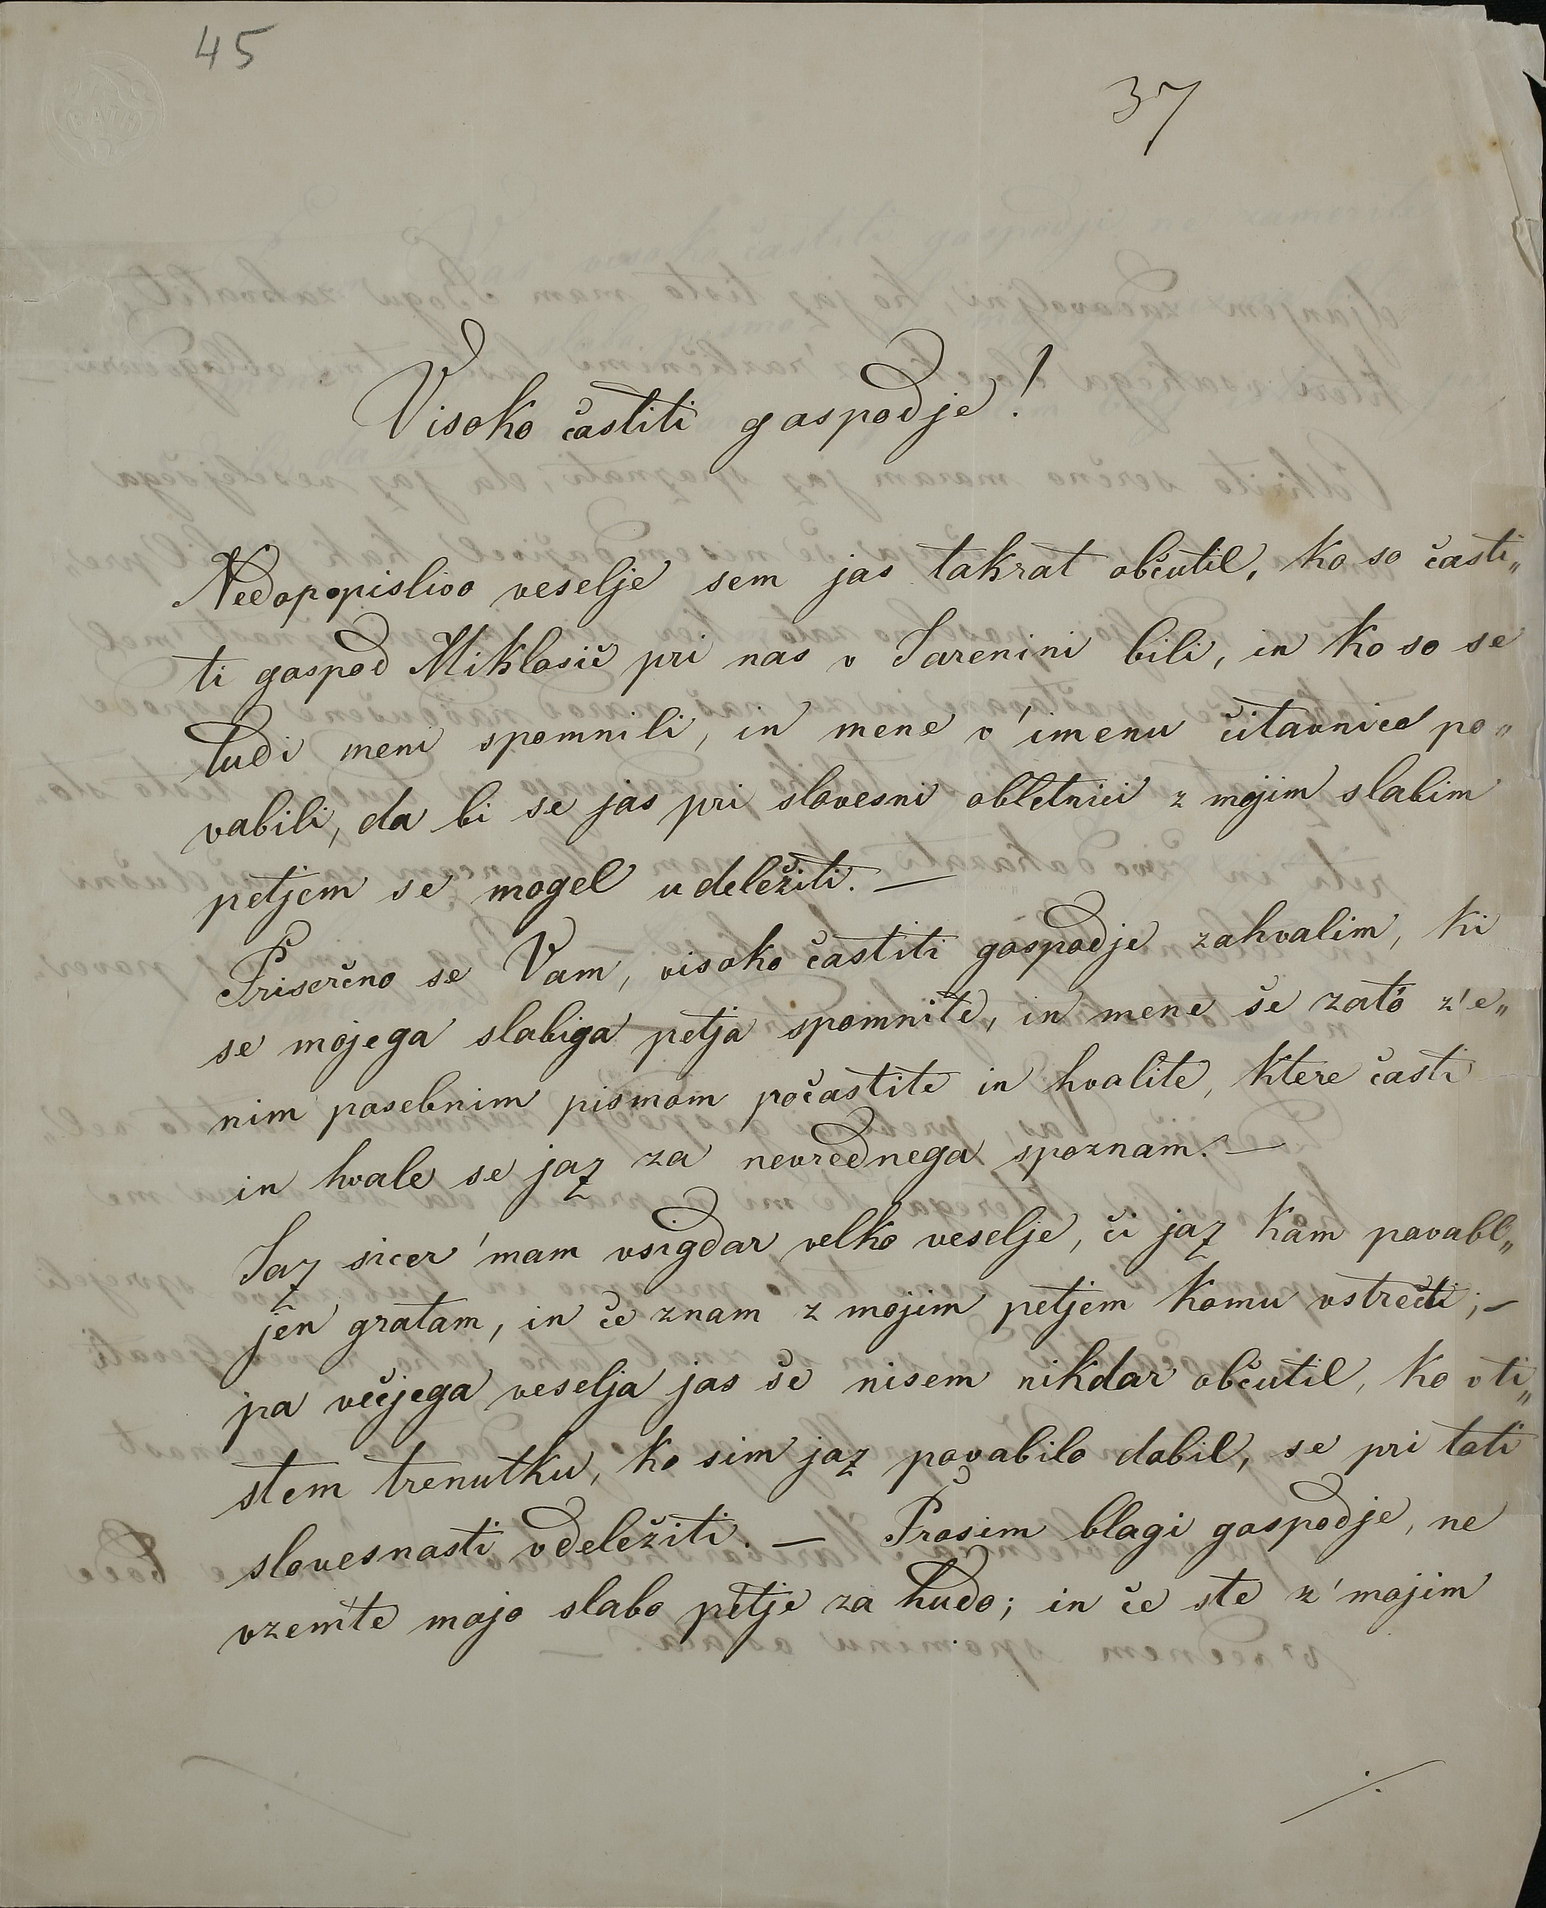 45
37
Visoko častiti gospodje!
Nedopopislivo veselje sem jas takrat občutil, ko so časti„
ti gospod Miklosič pri nas v Jarenini bili, in ko so se
tudi meni spomnili, in mene v' imenu čitavnice po„
vabili, da bi se jas pri slovesni obletnici z mojim slabim
petjem se mogel udeležiti. —
Priserčno se Vam, visoko častiti gospodje zahvalim, ki
se mojega slabiga petja spomnite, in mene še zató z'e„
nim posebnim pismom počastite in hvalite, ktere časti
in hvale se jaz za nevrednega spoznam. —
Jaz sicer 'mam vsigdar velko veselje, či jaz kam povabl„
jen gratam, in če znam z mojim petjem komu vstreči; —
pa večjega veselja jas še nisem nikdar občutil, ko v ti„
stem trenutku, ko sim jaz povabilo dobil, se pri toti
slovesnosti vdeležiti. — Prosim blagi gospodje, ne
vzemte mojo slabo petje za hudo; in če ste z' mojim
./.